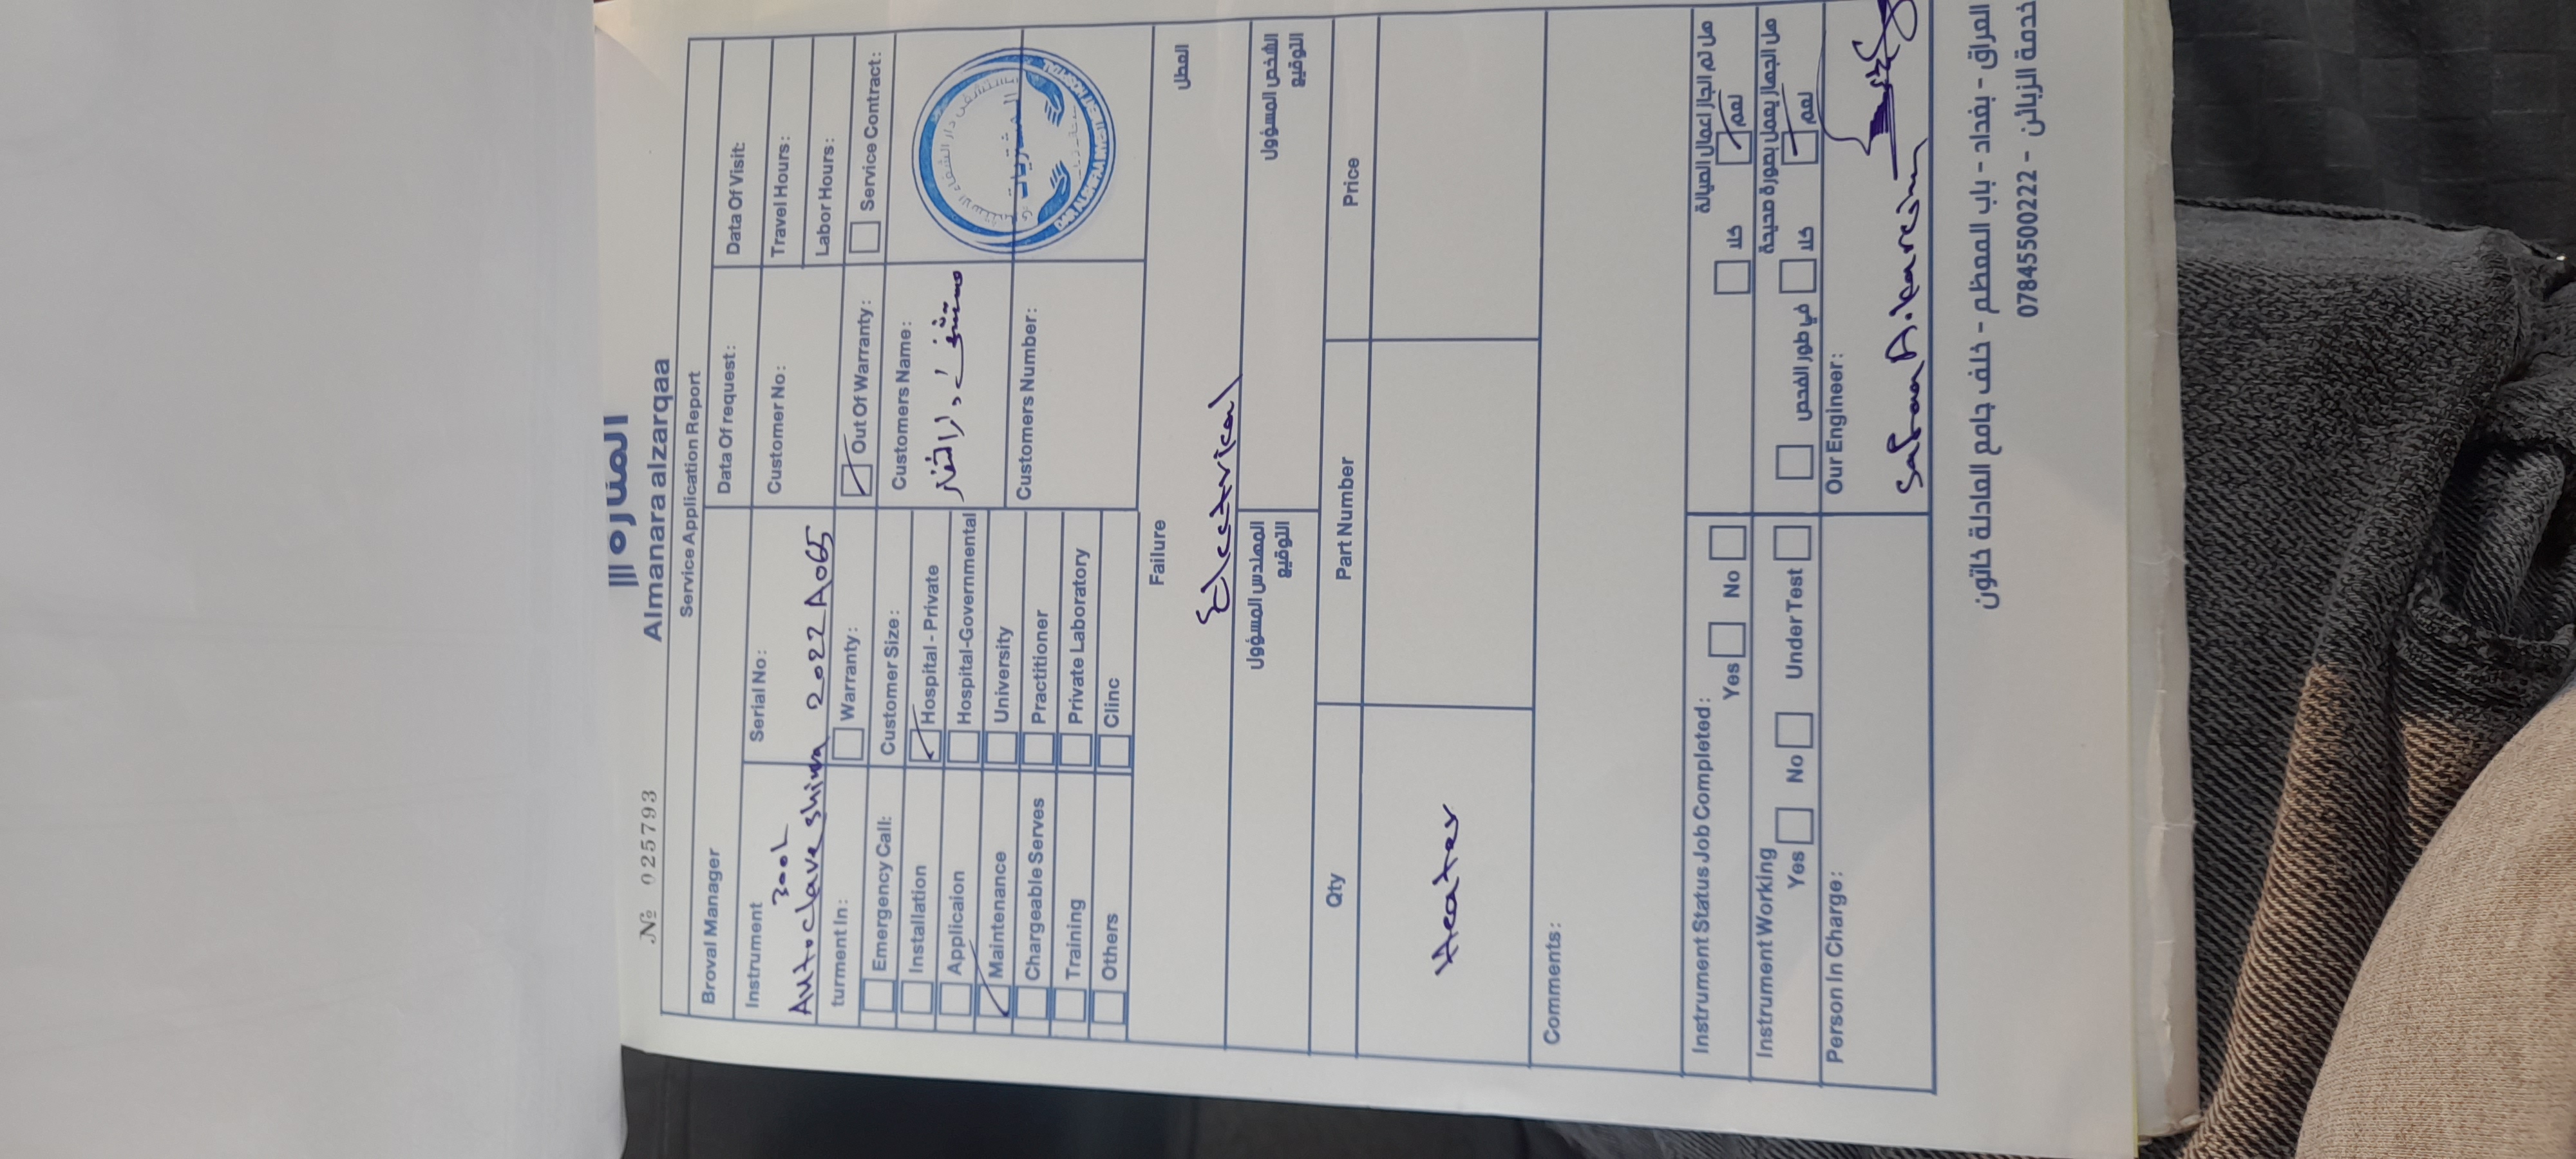 المناره
Almanara alzarqaa
№ 025793
Service Application Report
Broval Manager
Data Of request:
Data Of Visit:
Instrument
Serial No:
Customer No:
Travel Hours:
300L
Autoclave shinva 2022A065
Labor Hours:
turment In:
Warranty:
Out Of Warranty:
Service Contract:
Emergency Call:
Customer Size:
Customers Name:
Installation
Hospital - Private
مستشفى دار الشفاء
Applicaion
Hospital-Governmental
Maintenance
University
Customers Number:
Chargeable Serves
Practitioner
Training
Private Laboratory
Others
Clinc
مستشفى دار الشفاء
المشتريات
Failure
العطل
Electrical
المهندس المسؤول
الشخص المسؤول
التوقيع
التوقيع
Qty
Part Number
Price
Heater
Comments:
Instrument Status Job Completed:
هل تم انجاز اعمال الصيانة
Yes
No
كلا
نعم
Instrument Working
هل الجهاز يعمل بصورة صحيحة
Yes
No
Under Test
في طور الفحص
كلا
نعم
Person In Charge:
Our Engineer:
Safaa A.kareim
العراق - بغداد - باب المعظم - خلف جامع العادلة خاتون
خدمة الزبائن - 07845500222